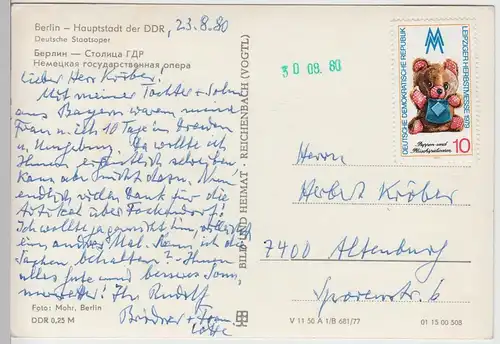 Berlin – Hauptstadt der DDR, 23.8.80
Deutsche Staatsoper
Берлин — Столица ГДР
Немецкая государственная опера
Lieber Herr Kröber!
Mit meiner Tochter + Sohn
aus Bayern waren meine
Frau u. ich 10 Tage in Dresden
u. Umgebung. Da wollte ich
Ihnen schreiben
kam aber nicht dazu. Nun
endlich vielen Dank für die
Artikel über
Ich wollte ja
ein andres Mal. Kann ich die
Sachen behalten? – Ihnen
alles Gute und besseres Sommer-
wetter! Ihr Rudolf
+ Frau
Lotte
Foto: Mohr, Berlin
DDR 0,25 M
BILD UND HEIMAT · REICHENBACH (VOGTL)
30 09. 80
DEUTSCHE DEMOKRATISCHE REPUBLIK
LEIPZIGER HERBSTMESSE 1979
Puppen und
Plüschspielwaren
10
Herrn
Herbert Kröber
7400 Altenburg
Sporenstr. 6
V 11 50 A 1/B 681/77
01 15 00 505